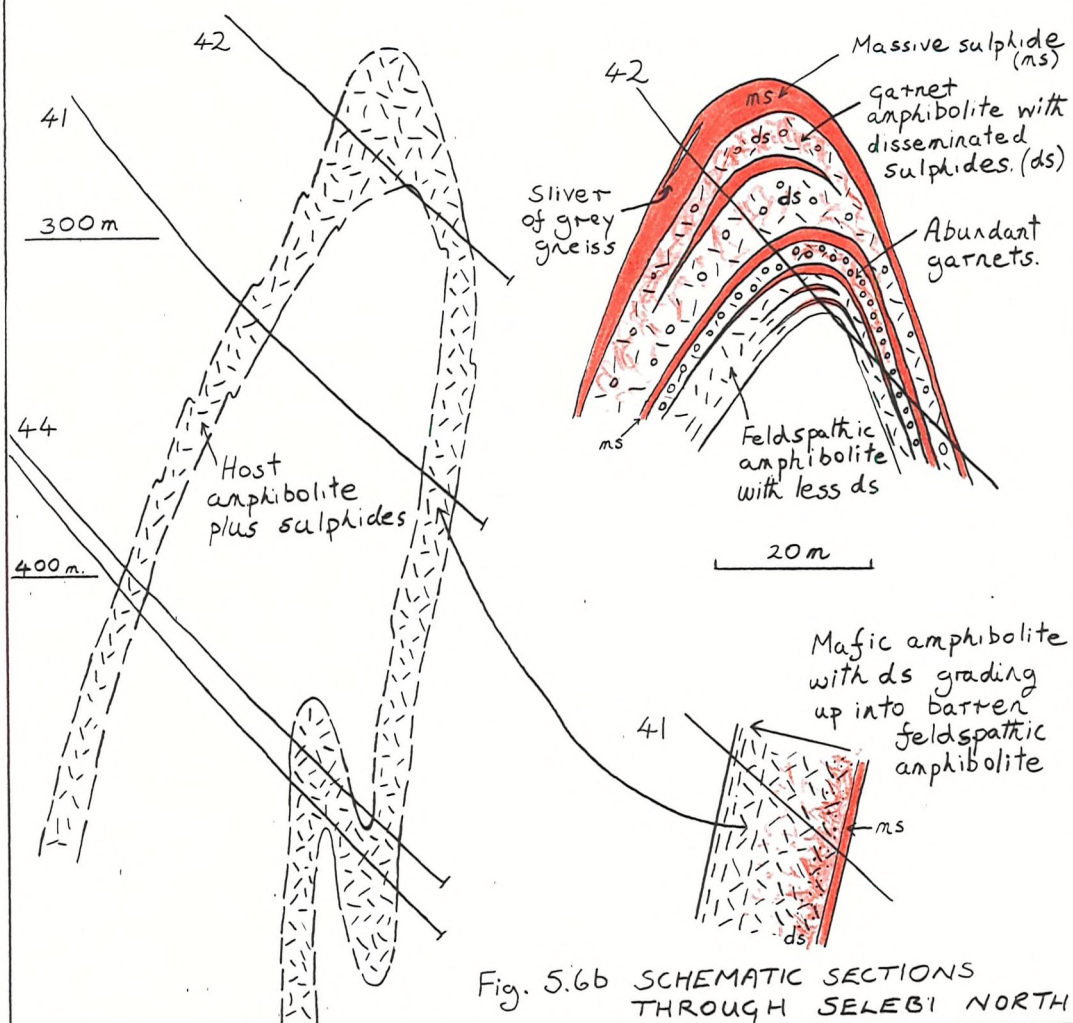 42
41
300 m
44
Host
amphibolite
plus sulphides
400 m.
42
Massive sulphide
(ms)
ms
garnet
amphibolite with
disseminated
sulphides. (ds)
ds
ds
Sliver
of grey
gneiss
Abundant
garnets.
ms
Feldspathic
amphibolite
with less ds
20 m
Mafic amphibolite
with ds grading
up into barren
feldspathic
amphibolite
41
ms
ds
Fig. 5.6b SCHEMATIC SECTIONS
THROUGH SELEBI NORTH